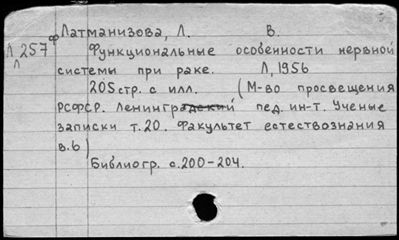 Латманизова, Л. В.
Л 257 ф Функциональные особенности нервной
л системы при раке. Л, 1956
205 стр. с илл. (М-во просвещения
РСФСР. Ленинградский пед. ин-т. Ученые
записки т. 20. Факультет естествознания
в. 6)
Библиогр. с. 200-204.